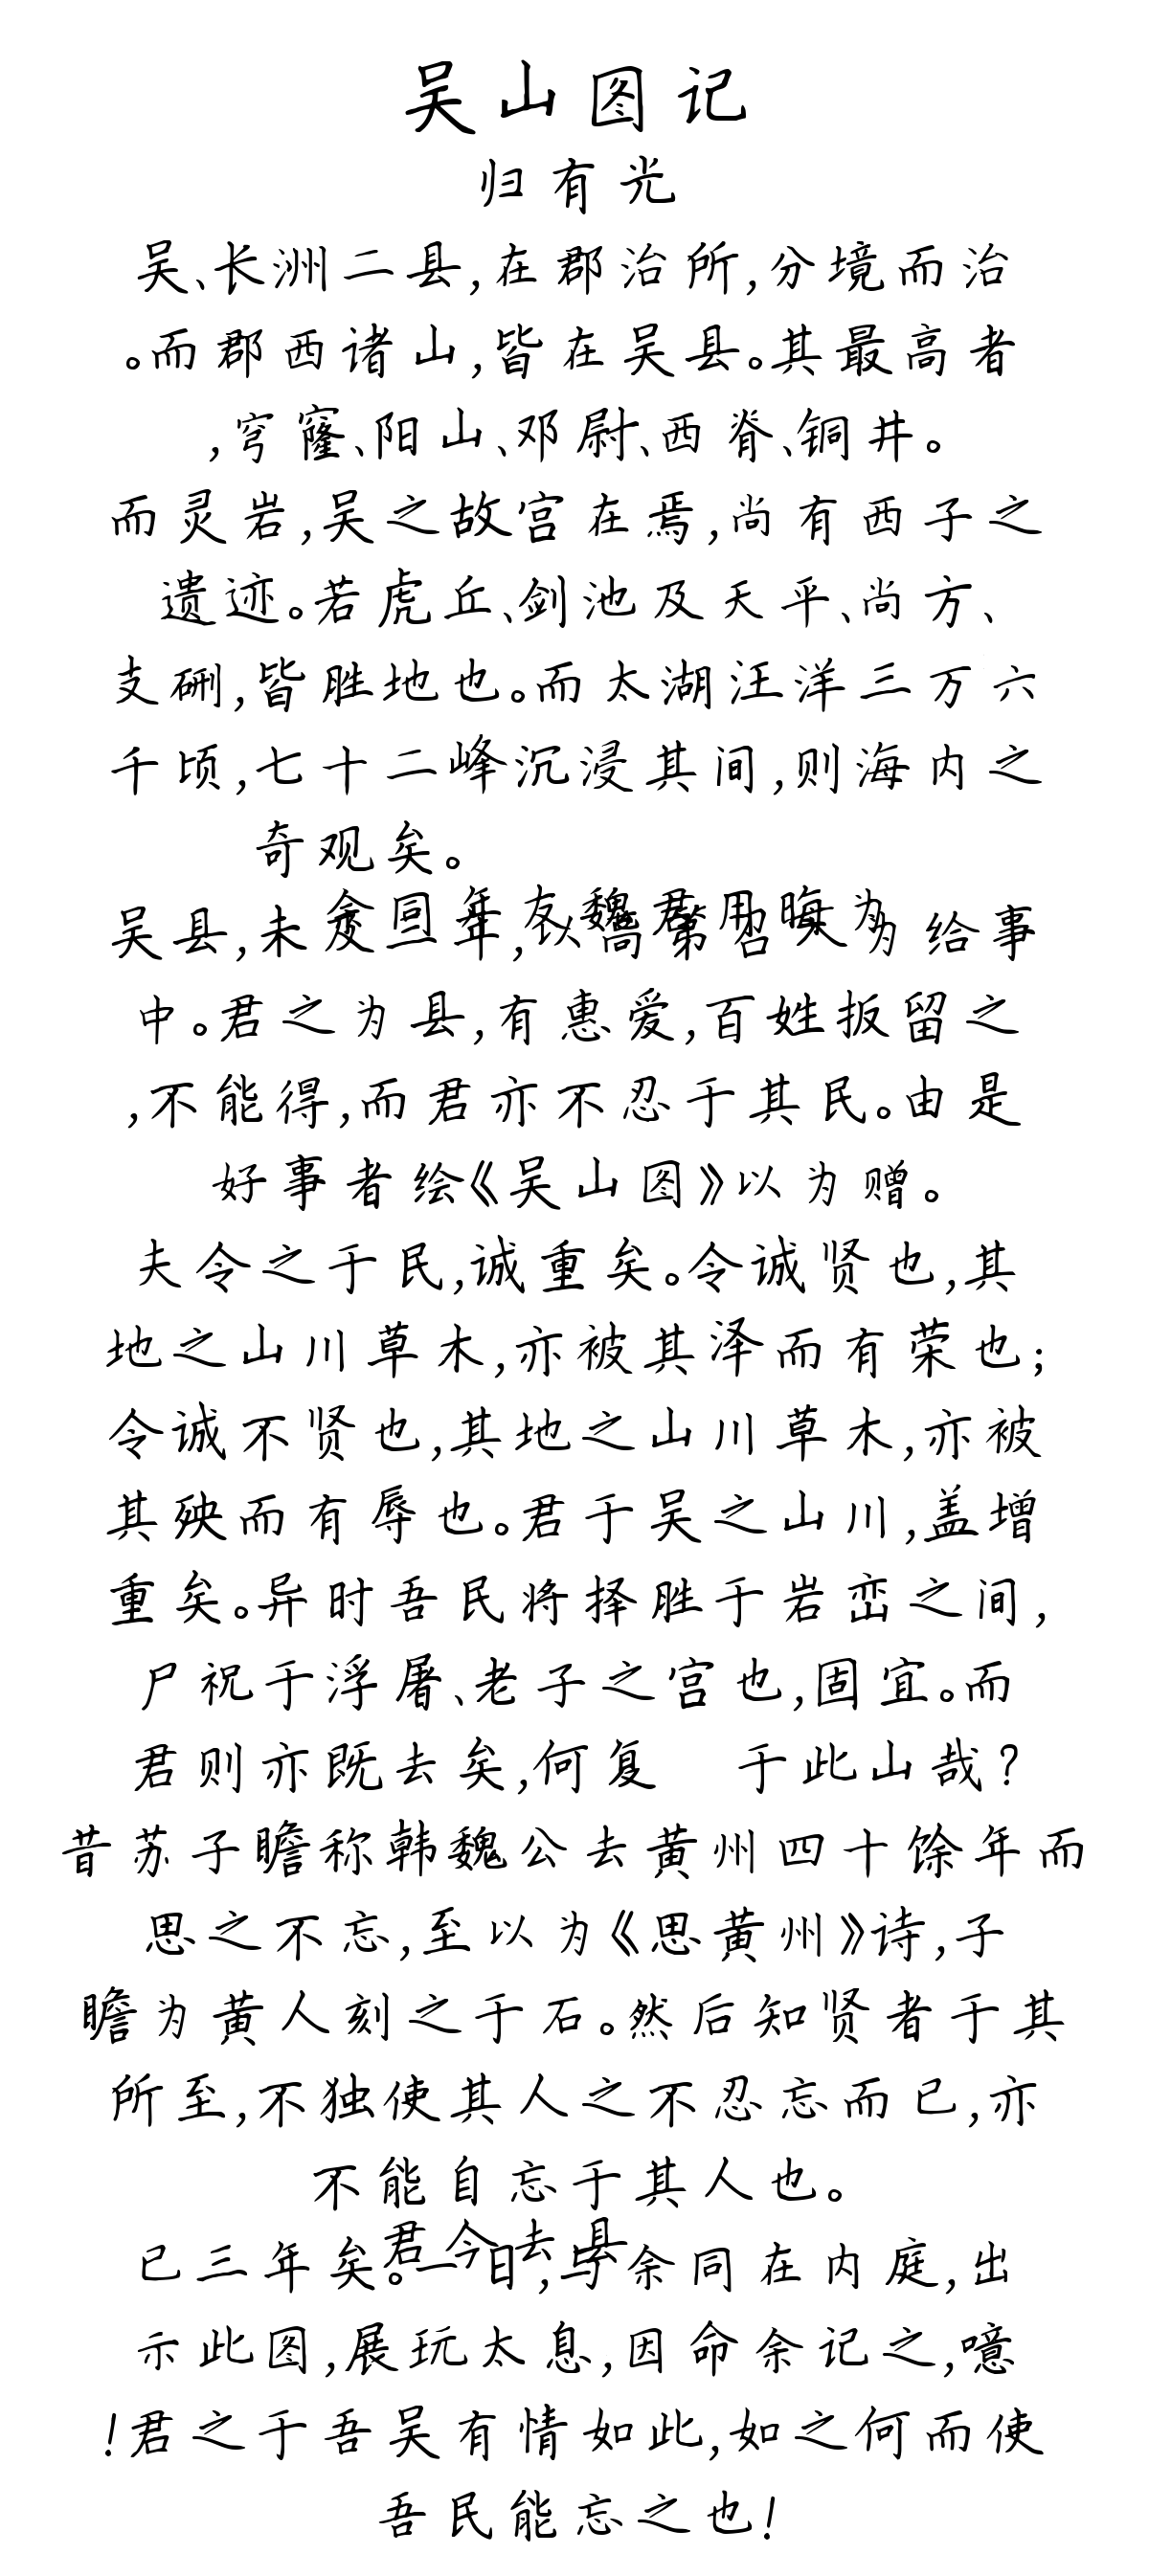 吴山图记
归有光
吴、长洲二县,在郡治所,分境而治
。而郡西诸山,皆在吴县。其最高者
,穹窿、阳山、邓尉、西脊、铜井。
而灵岩,吴之故宫在焉,尚有西子之
遗迹。若虎丘、剑池及天平、尚方、
支硎,皆胜地也。而太湖汪洋三万六
千顷,七十二峰沉浸其间,则海内之
奇观矣。
余同年友魏君用晦为
吴县,未及三年,以高第召入为给事
中。君之为县,有惠爱,百姓扳留之
,不能得,而君亦不忍于其民。由是
好事者绘《吴山图》以为赠。
夫令之于民,诚重矣。令诚贤也,其
地之山川草木,亦被其泽而有荣也;
令诚不贤也,其地之山川草木,亦被
其殃而有辱也。君于吴之山川,盖增
重矣。异时吾民将择胜于岩峦之间,
尸祝于浮屠、老子之宫也,固宜。而
君则亦既去矣,何复 于此山哉?
昔苏子瞻称韩魏公去黄州四十馀年而
思之不忘,至以为《思黄州》诗,子
瞻为黄人刻之于石。然后知贤者于其
所至,不独使其人之不忍忘而已,亦
不能自忘于其人也。
君今去县
已三年矣。一日,与余同在内庭,出
示此图,展玩太息,因命余记之,噫
!君之于吾吴有情如此,如之何而使
吾民能忘之也!